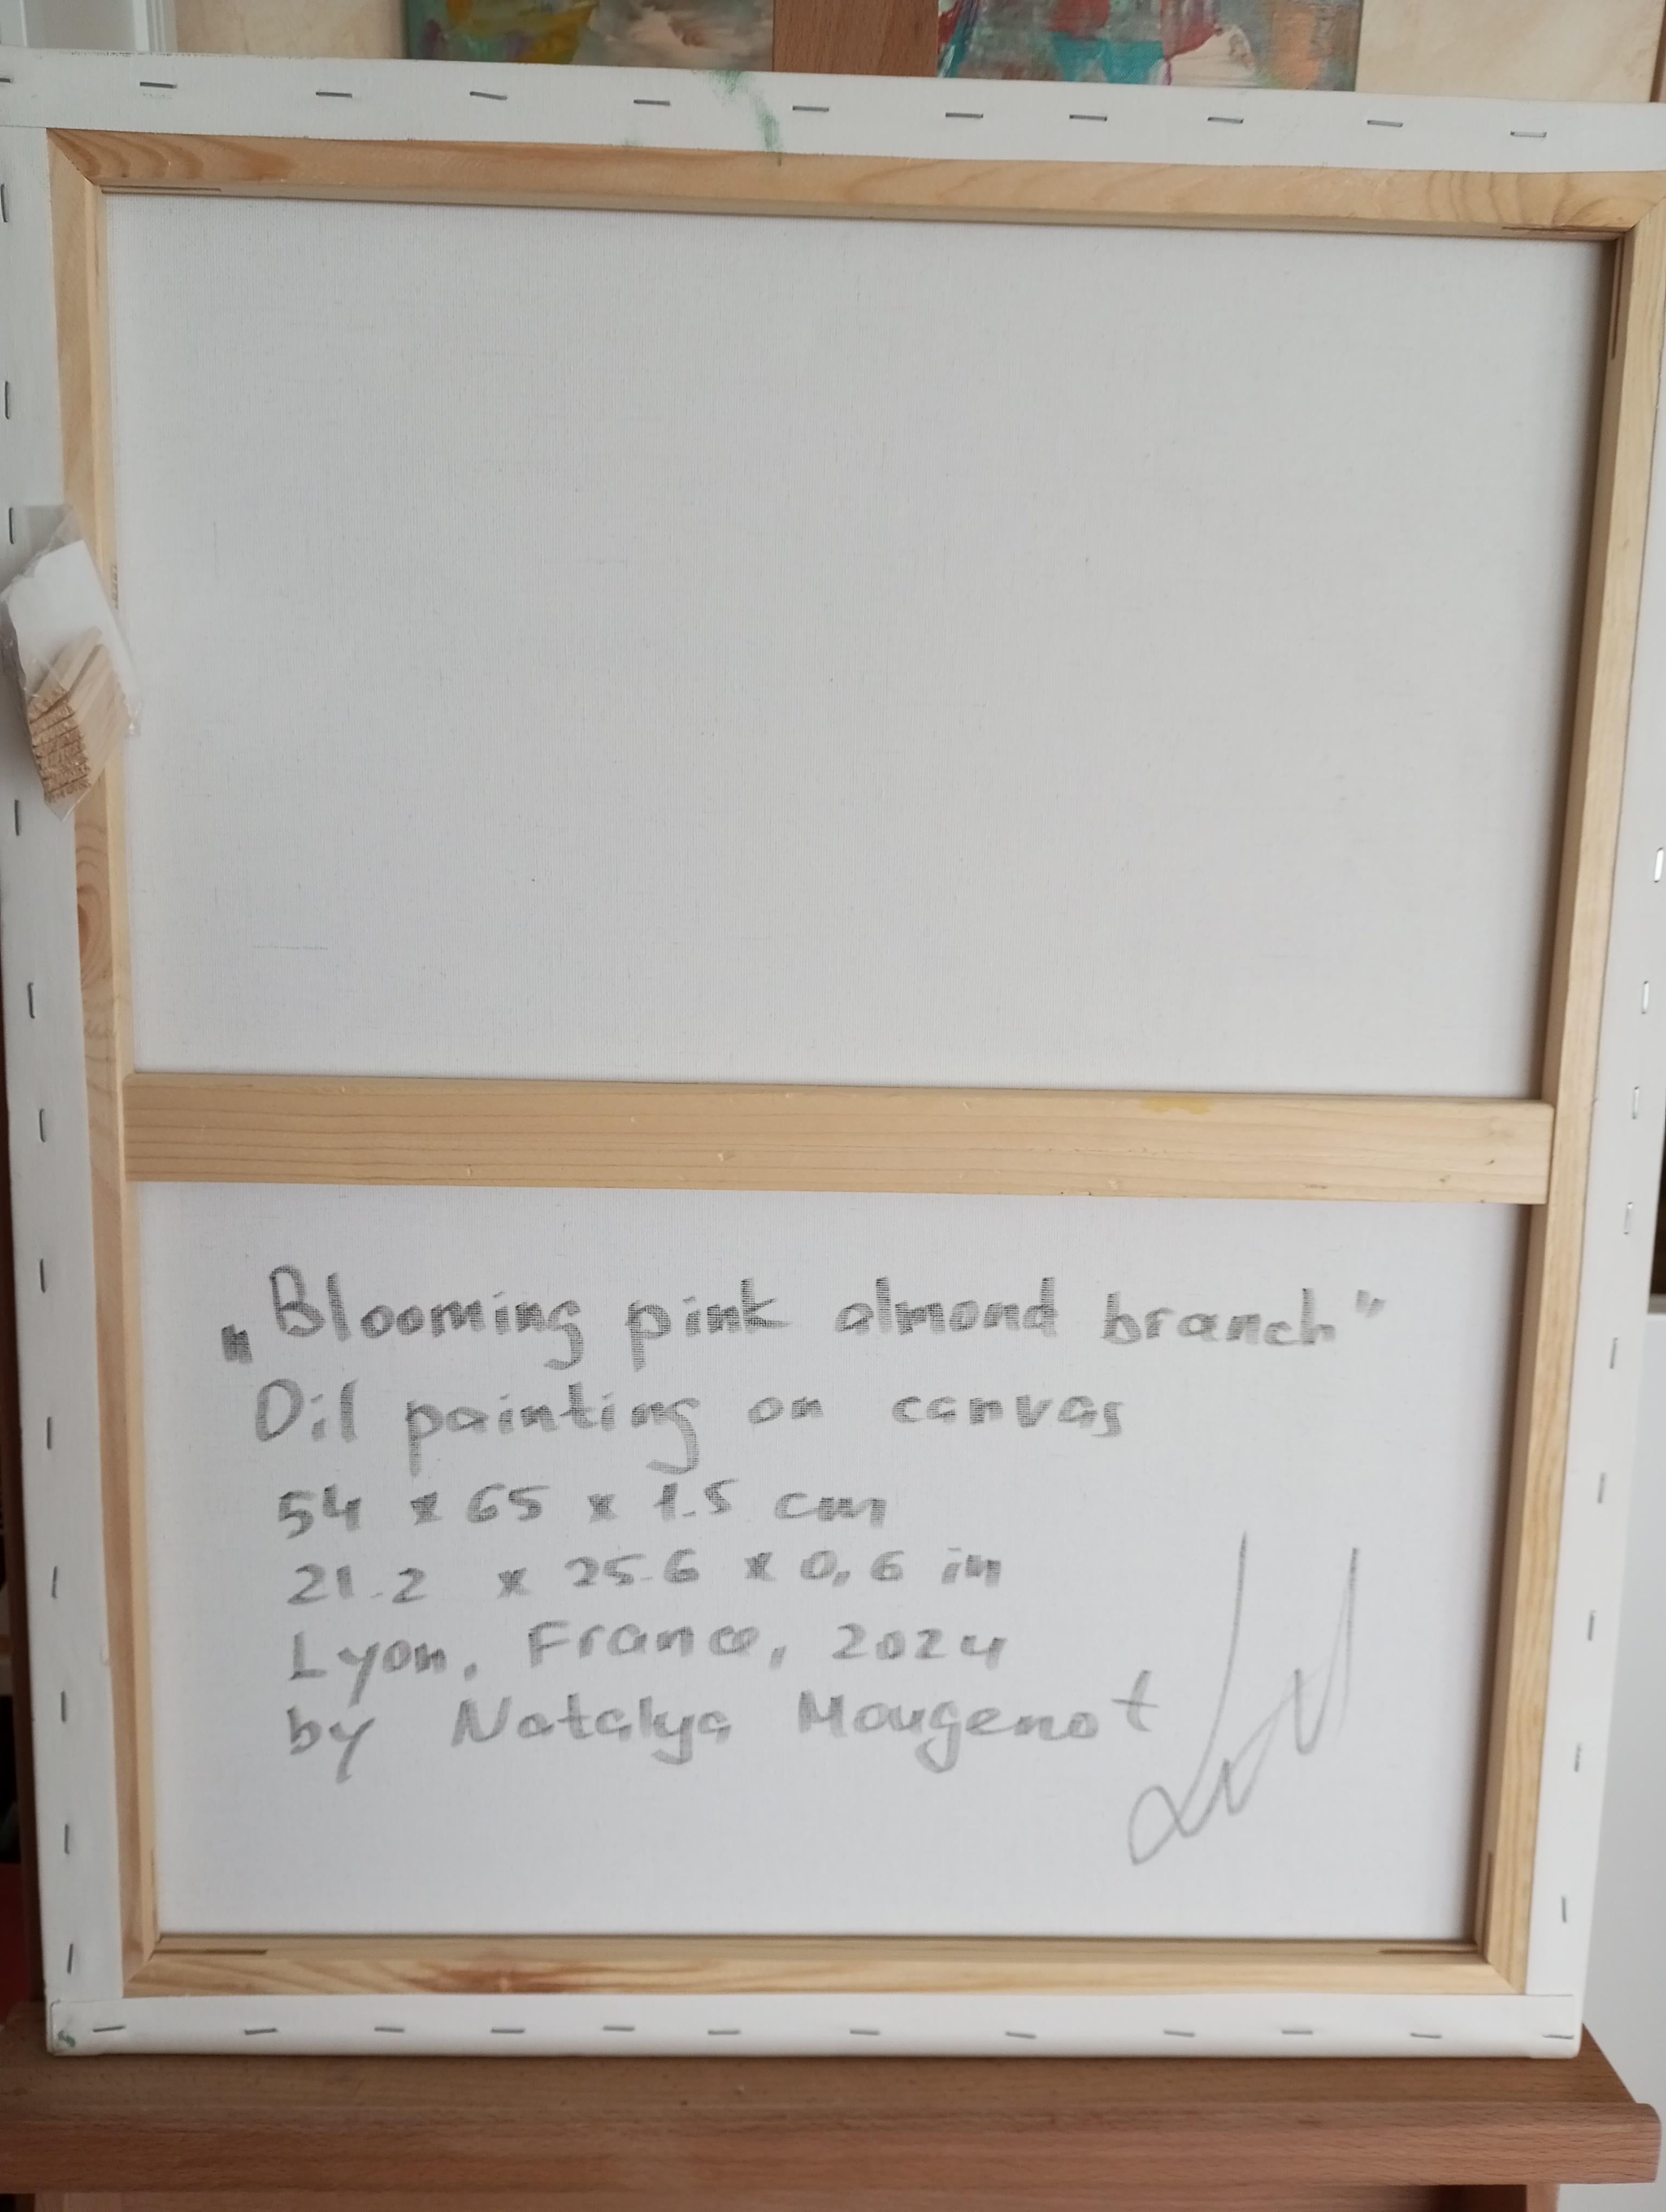 „Blooming pink almond branch”
Oil painting on canvas
54 x 65 x 1.5 cm
21.2 x 25.6 x 0,6 in
Lyon, France, 2024
by Natalya Mougenot